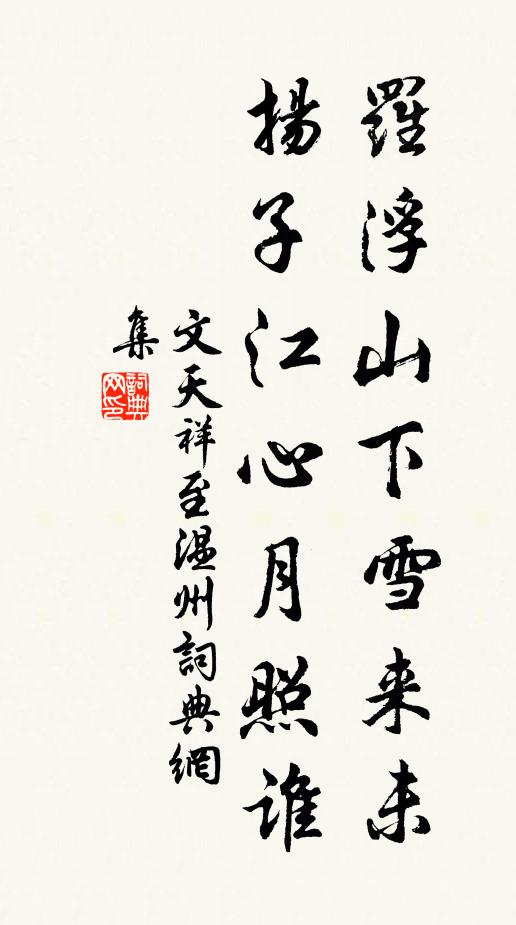 羅浮山下雪来未
揚子江心月照誰
文天祥至温州詞典網
集
詞典網印